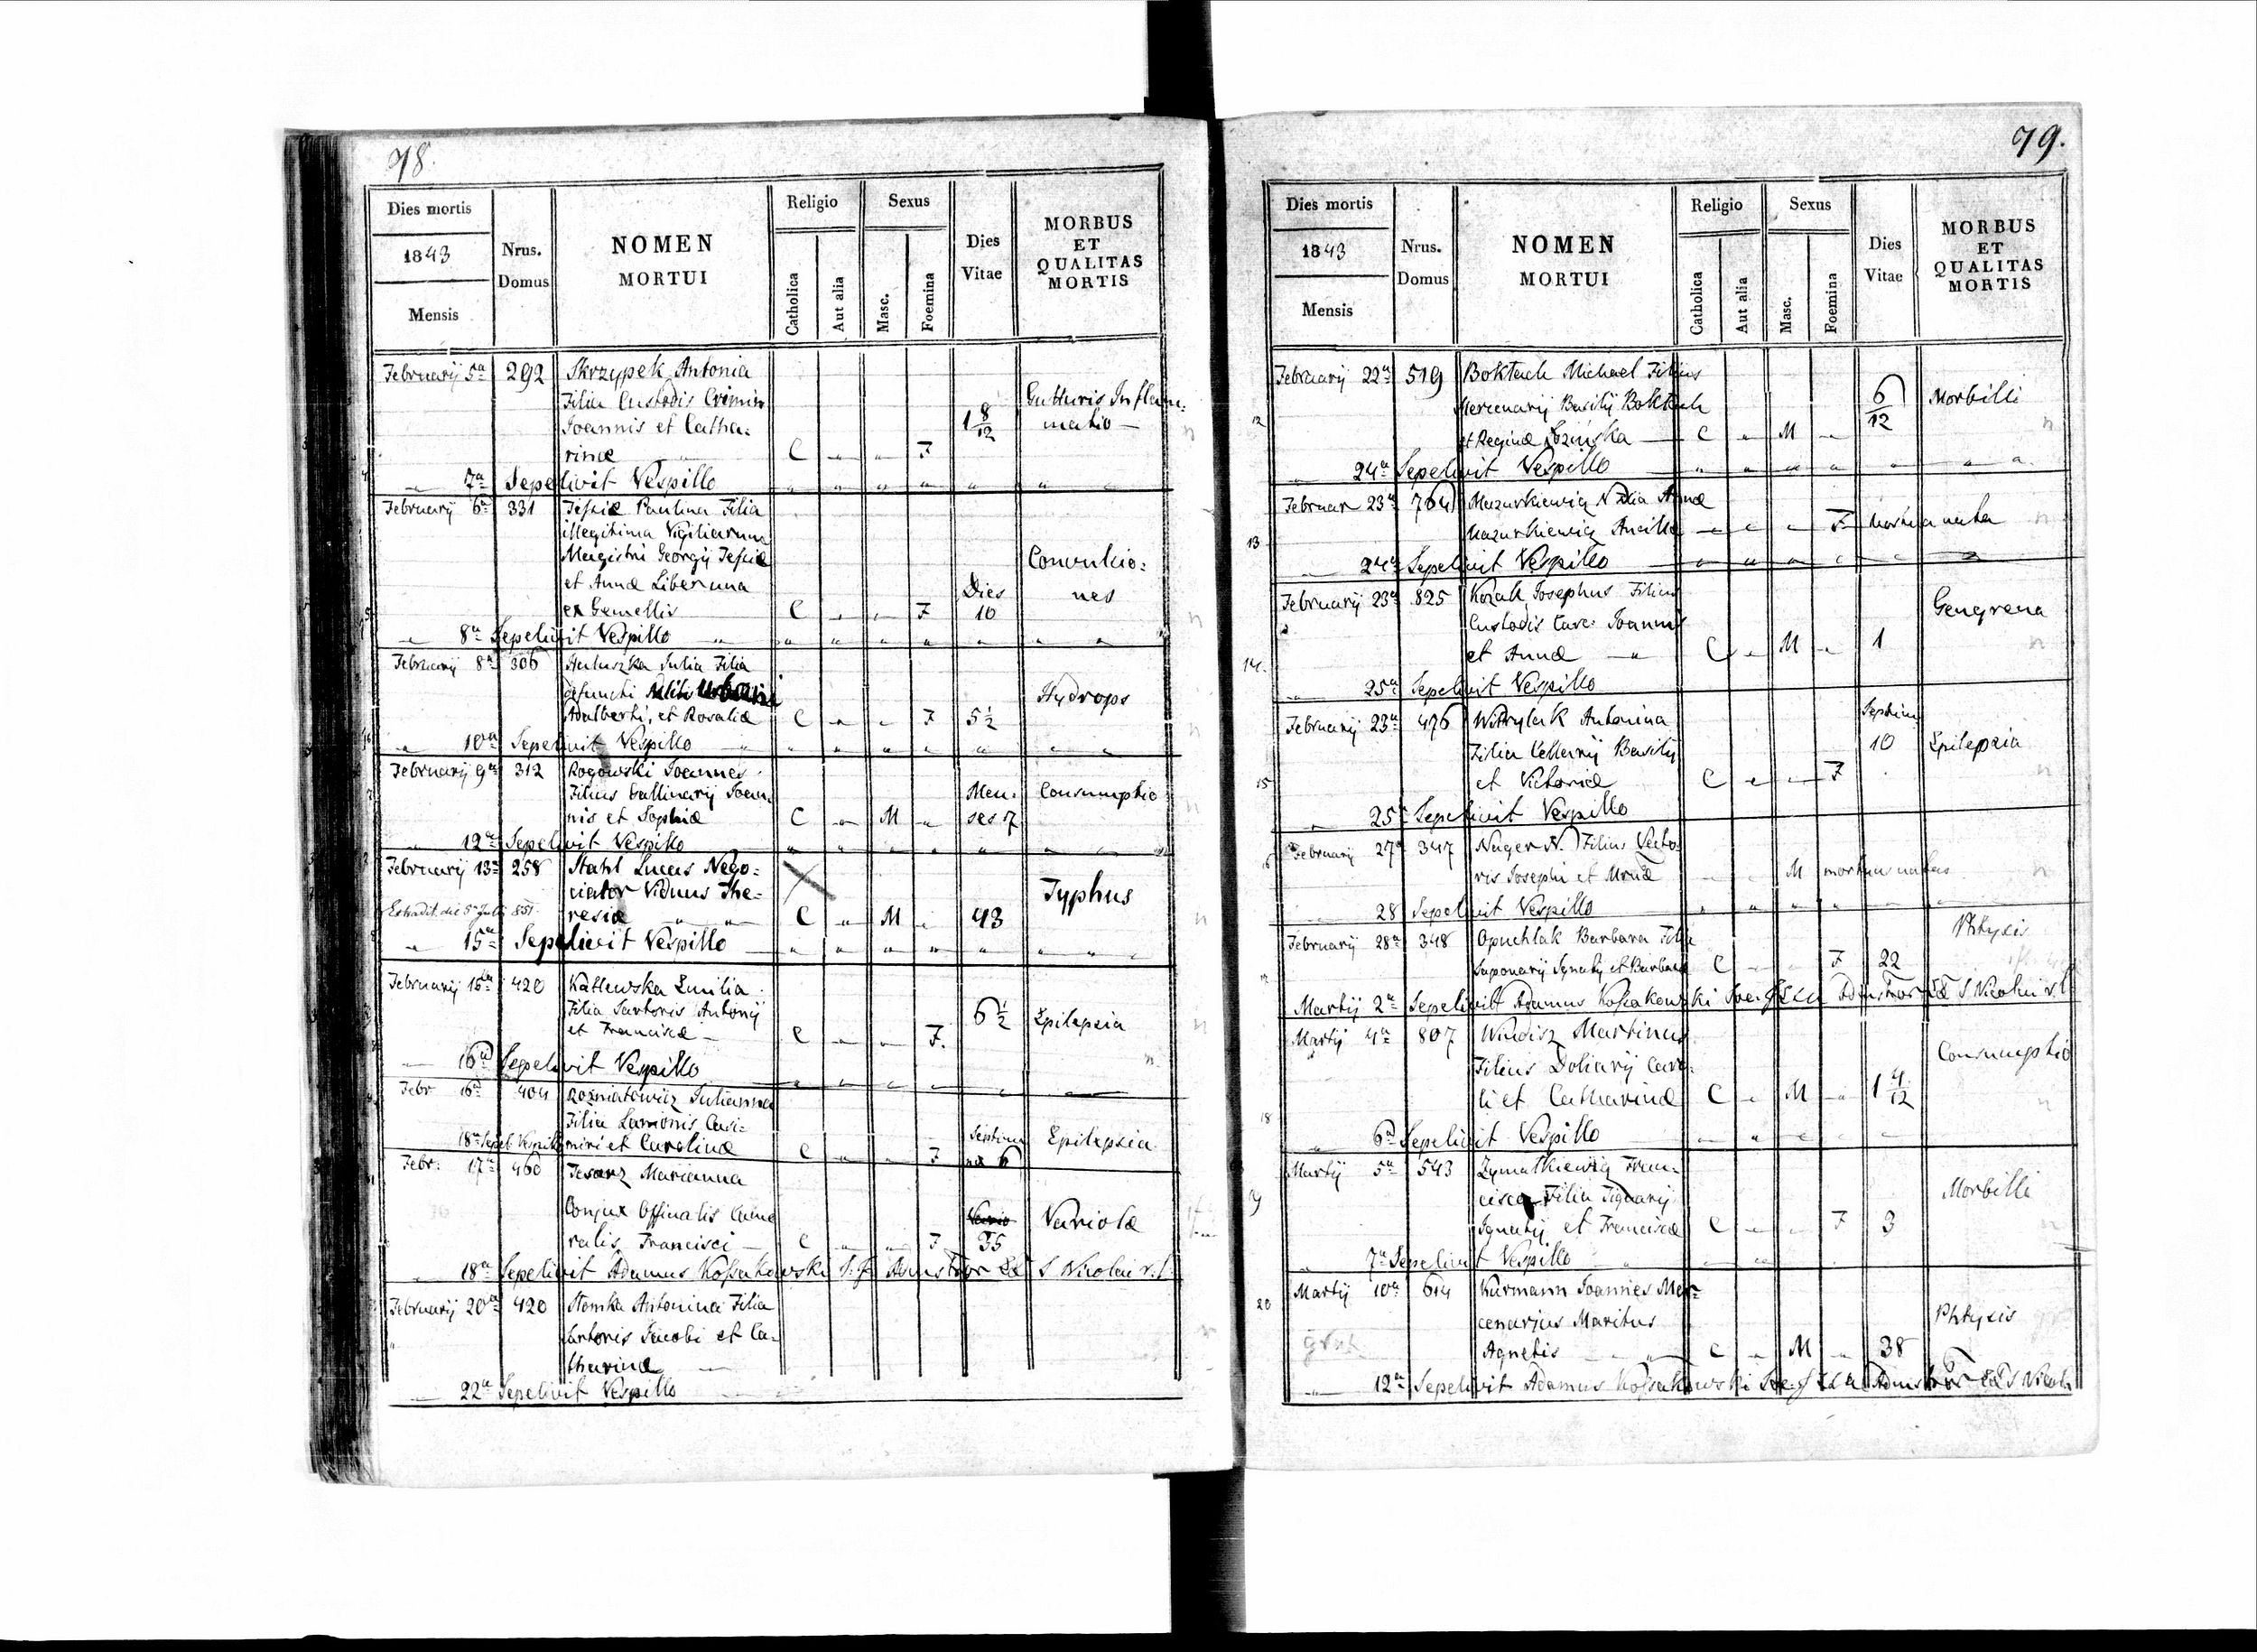 78.
Dies mortis
1843
Mensis
Nrus.
Domus
NOMEN
MORTUI
Religio
Catholica
Aut alia
Sexus
Masc.
Foemina
Dies
Vitae
MORBUS
ET
QUALITAS
MORTIS
Februarij 5a 292 Skrzypek Antonia
Filia Custodis Crimin
Joannis et Catha:
rinæ C " " F 1 8/12 Gutturis Inflam:
matio
" 7a Sepelivit Vespillo
Februarij 6a 331 Paulina Filia
illegitima Vigiliarum
Magistri Georgij
et Annæ Liberuna
ex Gemellis C " " F Dies
10 Convulsio:
nes
" 8a Sepelivit Vespillo
Februarij 8a 306 Hałuszka Julia Filia
defuncti
Adalberti, et Rosaliæ C " " F 5½ Hydrops
" 10a Sepelivit Vespillo
Februarij 9a 312 Rogowski Joannes
Filius Joan:
nis et Sophiæ C " M " Men:
ses 7 Consumptio
12a Sepelivit Vespillo
Februarij 13a 258 Stahl Lucas Nego:
ciator Viduus The:
resiæ C " M " 43 Typhus
Extradit. die 5a Julij 851.
" 15a Sepelivit Vespillo
Februarij 15ta 420 Katlewska Emilia
Filia Sartoris Antonij
et Franciscæ C " " F. 6½ Epilepsia
" 16a Sepelivit Vespillo
Febr 16a 404 Rozniatowicz Julianna
Filia Lanionis Casi:
miri et Carolinæ C " " F Septima
næ 6 Epilepsia
18a Sepel. Vespillo
Febr: 17a 460 Jesarz Marianna
Conjux Officialis Came
ralis Francisci C " " F 35 Variolæ
" 18a Sepelivit Adamus Kossakowski S. Nicolai r. l.
Februarij 20a 420 Stomka Antonina Filia
Sartoris Jacobi et Ca:
tharinæ
22a Sepelivit Vespillo
79.
Dies mortis
1843
Mensis
Nrus.
Domus
NOMEN
MORTUI
Religio
Catholica
Aut alia
Sexus
Masc.
Foemina
Dies
Vitae
MORBUS
ET
QUALITAS
MORTIS
Februarij 22a 519 Boktach Michael Filius
Mercenarij Basilij Boktach
et Reginæ C " M " 6/12 Morbilli
12
" 24a Sepelivit Vespillo
Februar 23a 764 Mazurkiewicz N Filia Annæ
Mazurkiewicz Ancillæ F mortua nata
13
24a Sepelivit Vespillo
Februarij 23a 825 Kozak Josephus Filius
Custodis Carc: Joannis
et Annæ C " M " 1 Gengrena
14.
" 25a Sepelivit Vespillo
Februarij 23a 476 Witrylak Antonina
Filia Cellarij Basilij
et Victoriæ C " " F Septim
10 Epilepsia
15
25a Sepelivit Vespillo
Februarij 27a 347 Nager N. Filius Vecto:
ris Josephi et M mortuus natus
28 Sepelivit Vespillo
Februarij 28a 348 Opuchlak Barbara Filia
Saponarij Ignatij et Barbaræ C " " F 22 Phtysis
Martij 2a Sepelivit Adamus Kossakowski S Nicolai r. l.
Martij 4a 807 Windisz Martinus
Filius Doliarij Caro:
li et Catharinæ C " M " 1 4/12 Consumptio
18
" 6a Sepelivit Vespillo
Martij 5a 543 Zymatkiewicz Fran:
cisca Filia Tignarij
Ignatij et Franciscæ C " " F 3 Morbilli
19
" 7a Sepelivit Vespillo
Martij 10a 614 Kurmann Joannes Mer:
cenarius Maritus
Agnetis C " M " 38 Phtysis
20
" 12a Sepelivit Adamus Kossakowski S Nicolai